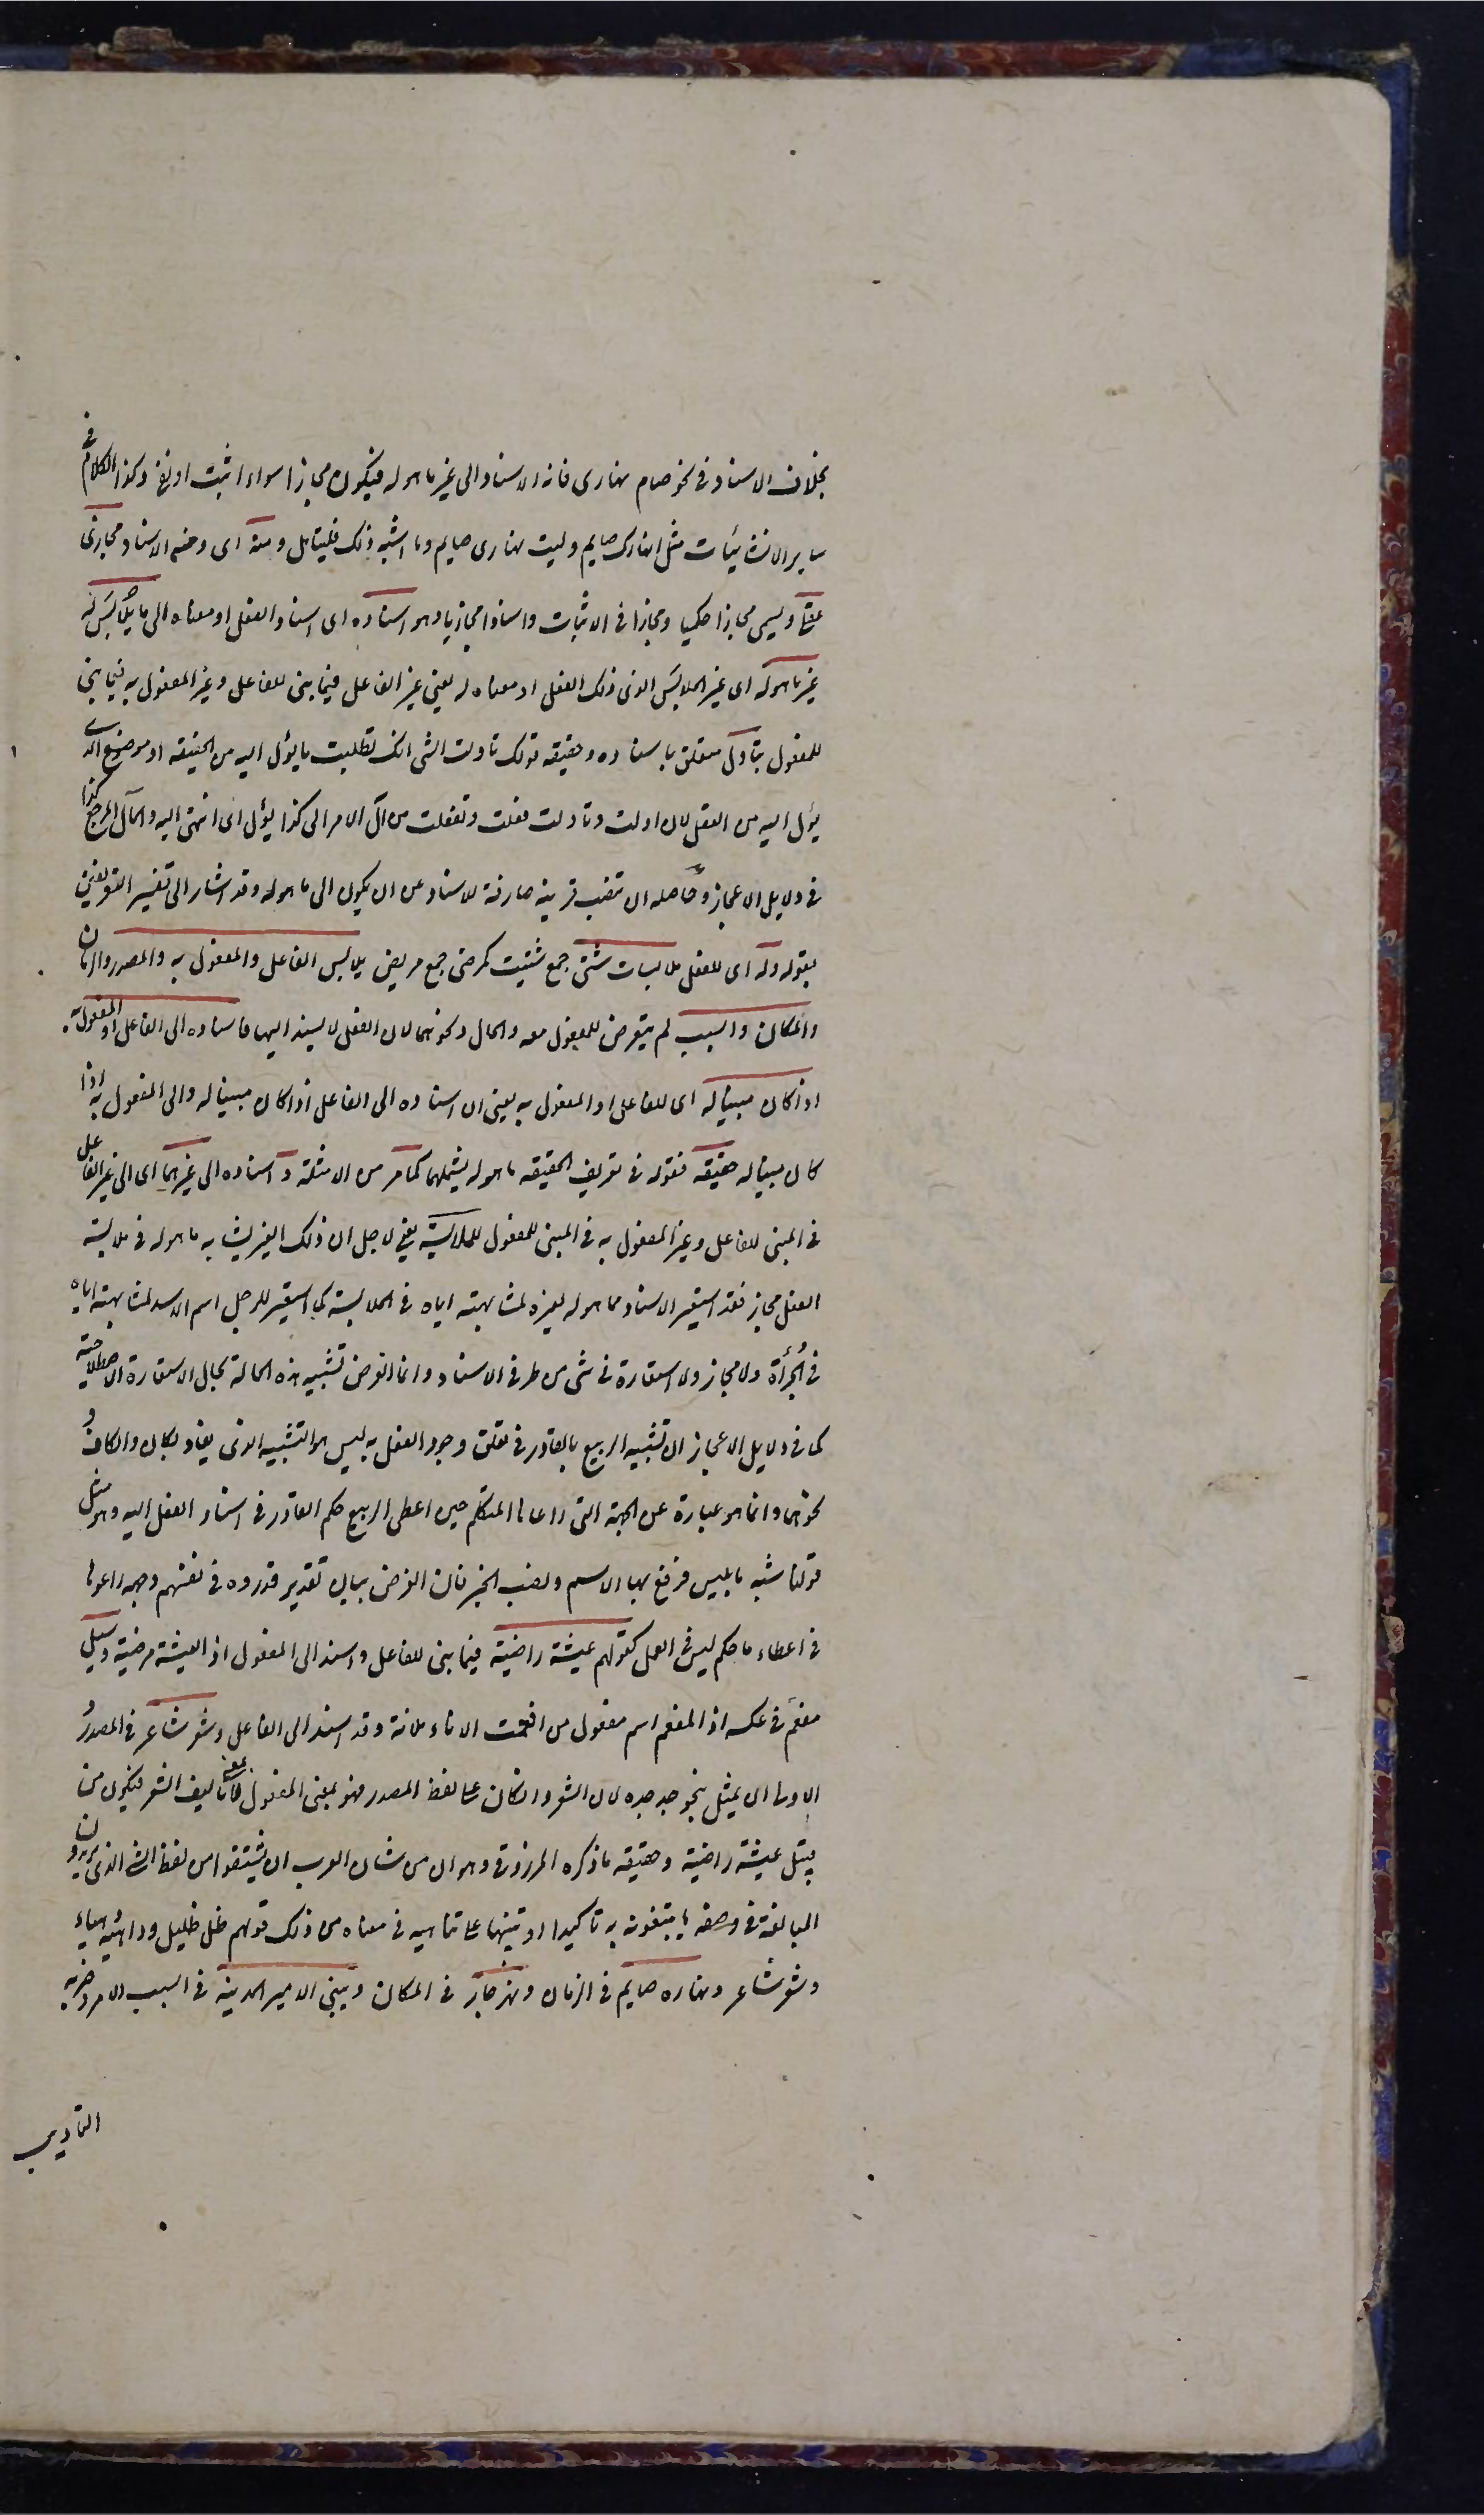 بخلاف الاسناد في نحو صام نهاري فانه الاسناد الى غير ما هو له فيكون مجازا سواء اثبت او نفي وكذا الكلام في
ساير الانشائيات مثل انهارك صايم وليت نهاري صايم وما اشبه ذلك فليتامل ومنه اي ومن الاسناد مجاز
عقلي ويسمى مجازا حكميا ومجازا في الاثبات واسنادا مجازيا وهو اسناده اي اسناد الفعل او معناه الى ملابس له
غير ما هو له اي غير الملابس الذي ذلك الفعل او معناه له يعني غير الفاعل فيما بني للفاعل وغير المفعول به فيما بني
للمفعول بتاول متعلق باسناده وحقيقه قولك تاولت الشى انك تطلبت ما يؤل اليه من الحقيقه او موضع الذي
يؤل اليه من العقل لان اولت وتاولت فعلت وتفعلت من آل الامر الى كذا يؤل اي انتهى اليه والمآل المرجع كذا
في دلايل الاعجاز وحاصله ان تنصب قرينة صارفة للاسناد عن ان يكون الى ما هو له وقد اشار الى تفسير التعريفين
بقوله وله اي للفعل ملابسات شتى جمع شتيت كمرضى جمع مريض يلابس الفاعل والمفعول به والمصدر والزمان
والمكان والسبب لم يتعرض للمفعول معه والحال ونحوهما لان الفعل لا يسند اليهما فاسناده الى الفاعل او المفعول به
اذا كان مبنيا له اي للفاعل او المفعول به يعني ان اسناده الى الفاعل اذا كان مبنيا له والى المفعول به اذا
كان مبنيا له حقيقه فقوله في تعريف الحقيقه ما هو له يشملهما كما مر من الامثلة و اسناده الى غيرهما اي الى غير الفاعل
في المبني للفاعل وغير المفعول به في المبني للمفعول للملابسة يعني لاجل ان ذلك الغير يشابه ما هو له في ملابسة
الفعل مجاز فقد استعير الاسناد مما هو له لغيره لمشابهته اياه في الملابسة كما استعير للرجل اسم الاسد لمشابهته اياه
في الجرأة ولا مجاز ولا استعارة في شى من طرفي الاسناد وانما الغرض تشبيه هذه الحالة بحال الاستعارة الاصطلاحية
كما في دلايل الاعجاز ان تشبيه الربيع بالقادر في تعلق وجود الفعل به ليس هو التشبيه الذي يفاد بكان والكاف و
نحوهما وانما هو عبارة عن الجهة التي راعاها المتكلم حين اعطى الربيع حكم القادر في اسناد الفعل اليه وهو مثل
قولنا شبه ما بليس فرفع بها الاسم ونصب الخبر فان الغرض بيان تقدير قدروه في نفوسهم وجهة راعوها
في اعطاء ما حكم ليس في العمل كقولهم عيشة راضية فيما بني للفاعل واسند الى المفعول اذ العيشة مرضية وسيل
مفعم في عكسه اذ المفعم اسم مفعول من افعمت الاناء ملاته وقد اسند الى الفاعل وشعر شاعر في المصدر و
الاولى ان يمثل بنحو جد جده لان الشعر وان كان على لفظ المصدر فهو بمعنى المفعول تاليف الشعر فيكون من
قبيل عيشة راضية وحقيقه ما ذكره المرزوقي وهو ان من شان العرب ان يشتقوا من لفظ الشى الذي يريدون
المبالغة في وصفه ما يتبعونه به تاكيدا وتنبيها على تناهيه في معناه من ذلك قولهم ظل ظليل وداهية دهياء
وشعر شاعر ونهاره صايم في الزمان ونهر جار في المكان وبنى الامير المدينة في السبب الامر وضربه
التاديب